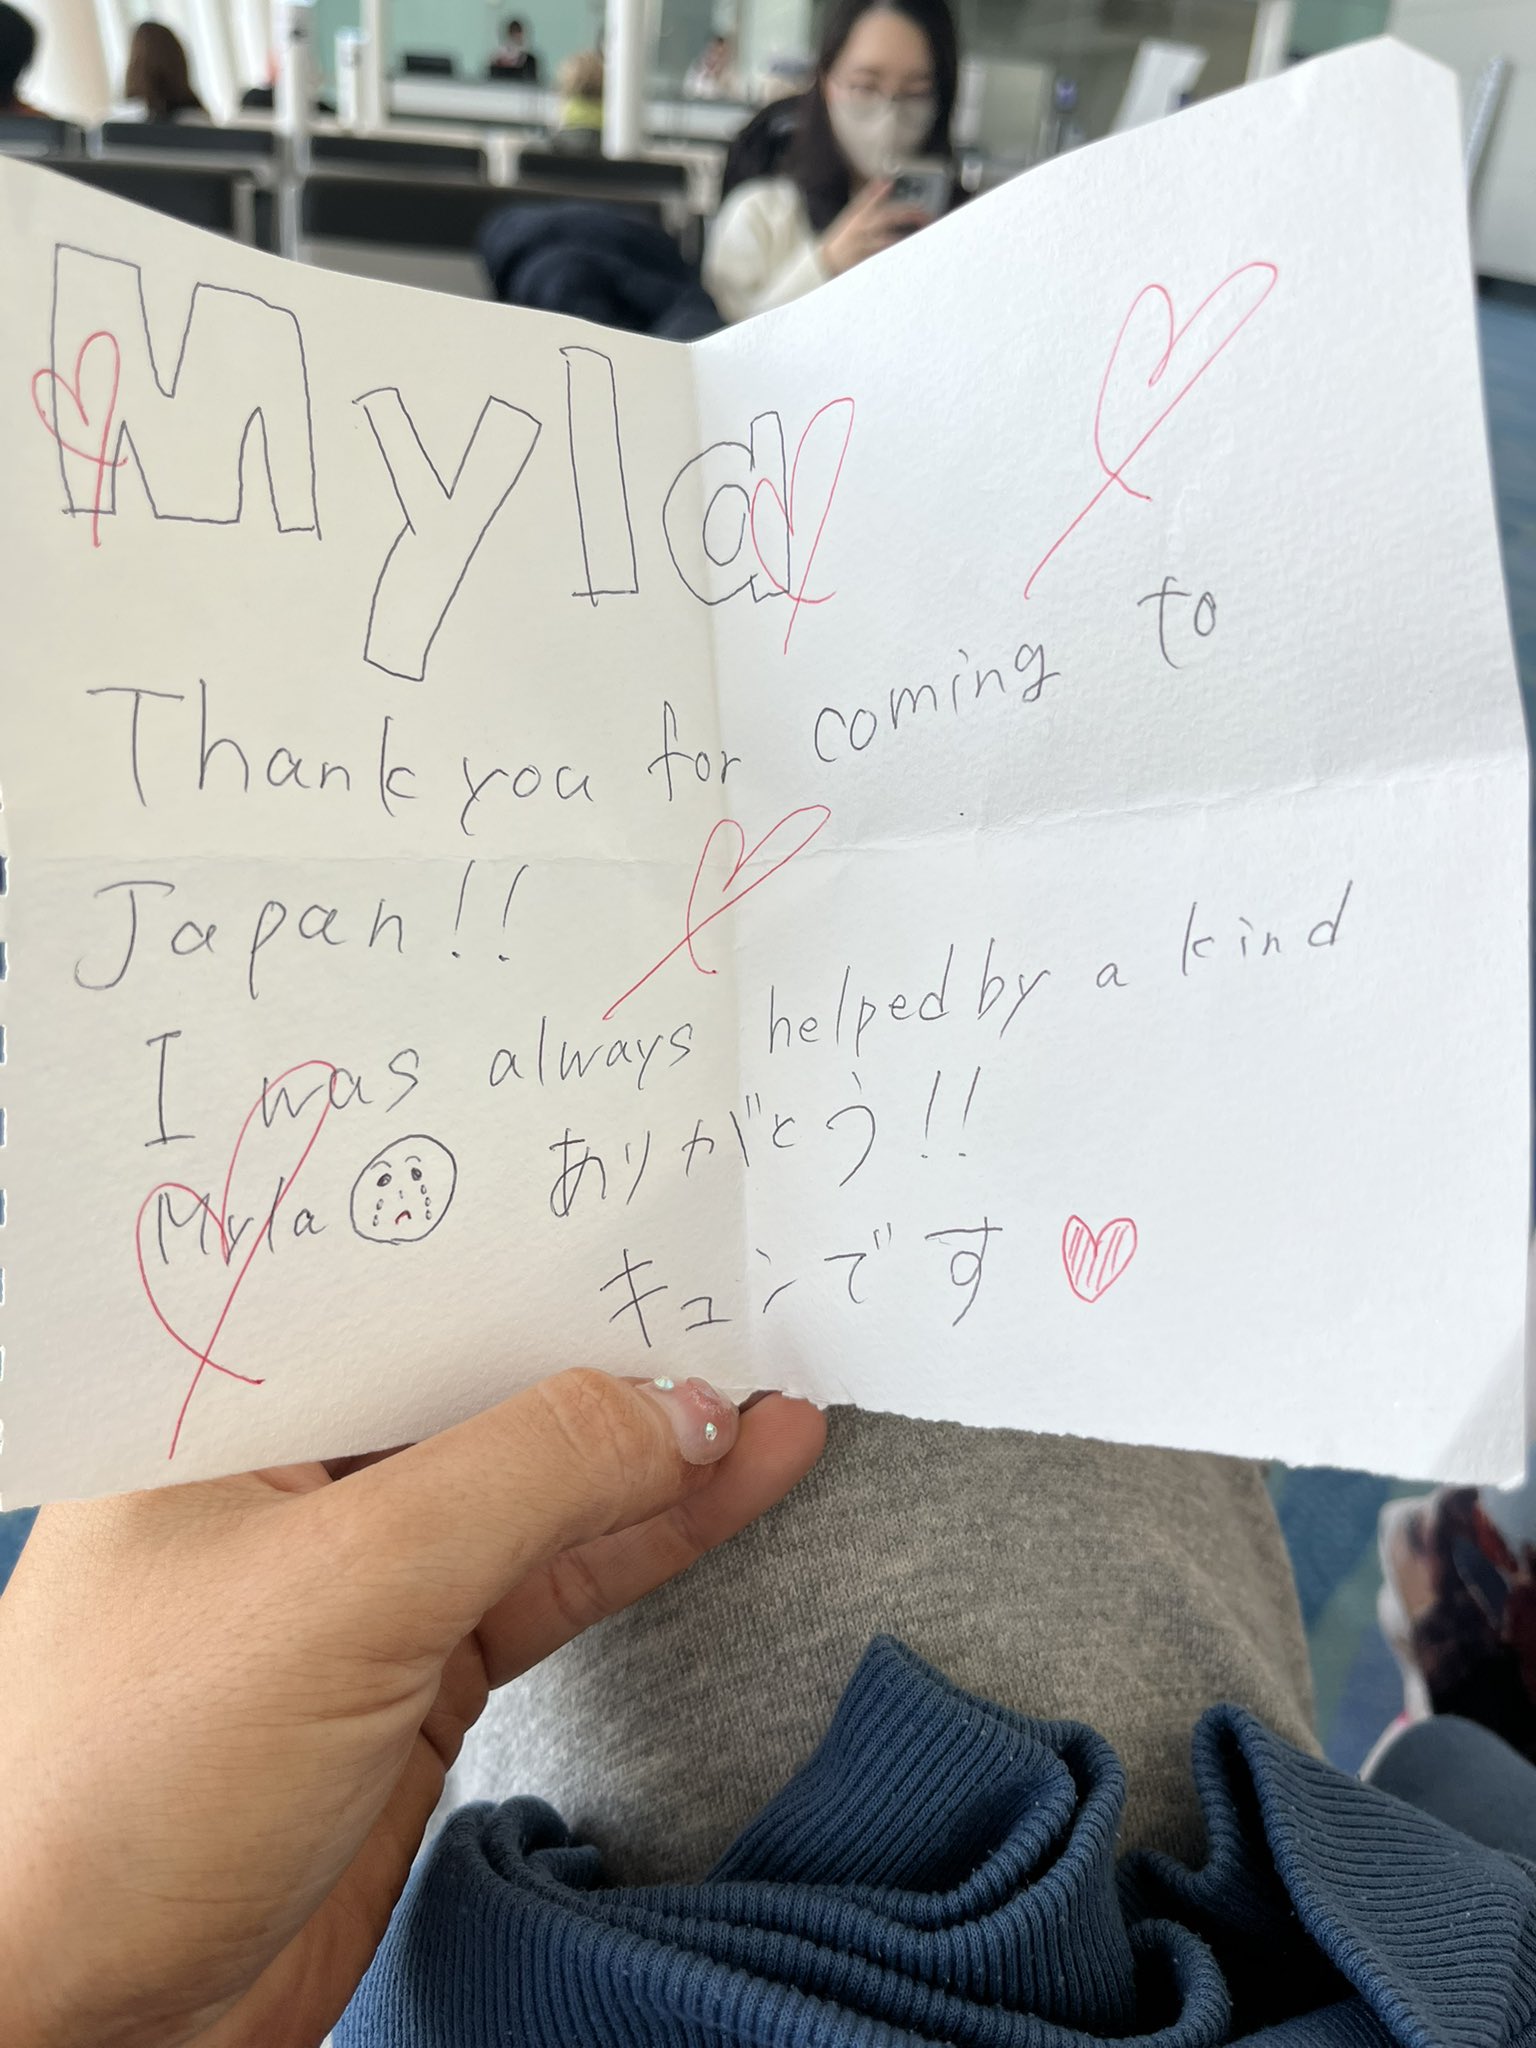 Myla
Thank you for coming to
Japan!!
I was always helped by a kind
Myla ありがとう!!
キュンです